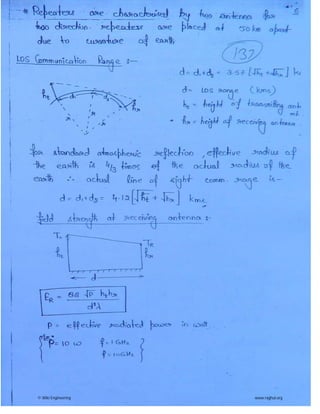 * Repeaters are characterised by two antenna for
two direction. repeaters are placed at 50 km apart
due to curvature of earth
(137)
LOS Communication Range :-
d = d₁+d₂ = 3.57 [√ht + √hr] km
d - LOS range (kms)
ht = height of transmitting ant
mt
hr = height of receiving antenna
d₁ d₂
ht
hr
r
r
for standard atmospheric reflection, effective radius of
the earth is 4/3 times of the actual radius of the
earth ∴ actual line of sight comm. range is -
d = d₁+d₂ = 4.12 [√ht + √hr] kms
field strength at receiving antenna :-
Tx
ht
Tx
hr
d
ER = 88 √P ht hr / d²λ
P = effective radiated power in watt.
P = 10 W f = 1 GHz
f = 10 GHz
www.raghul.org